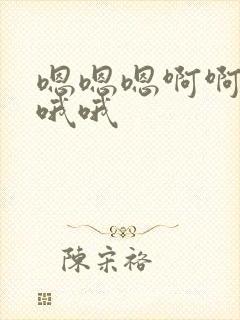 嗯嗯嗯啊啊
哦哦
陳宋裕